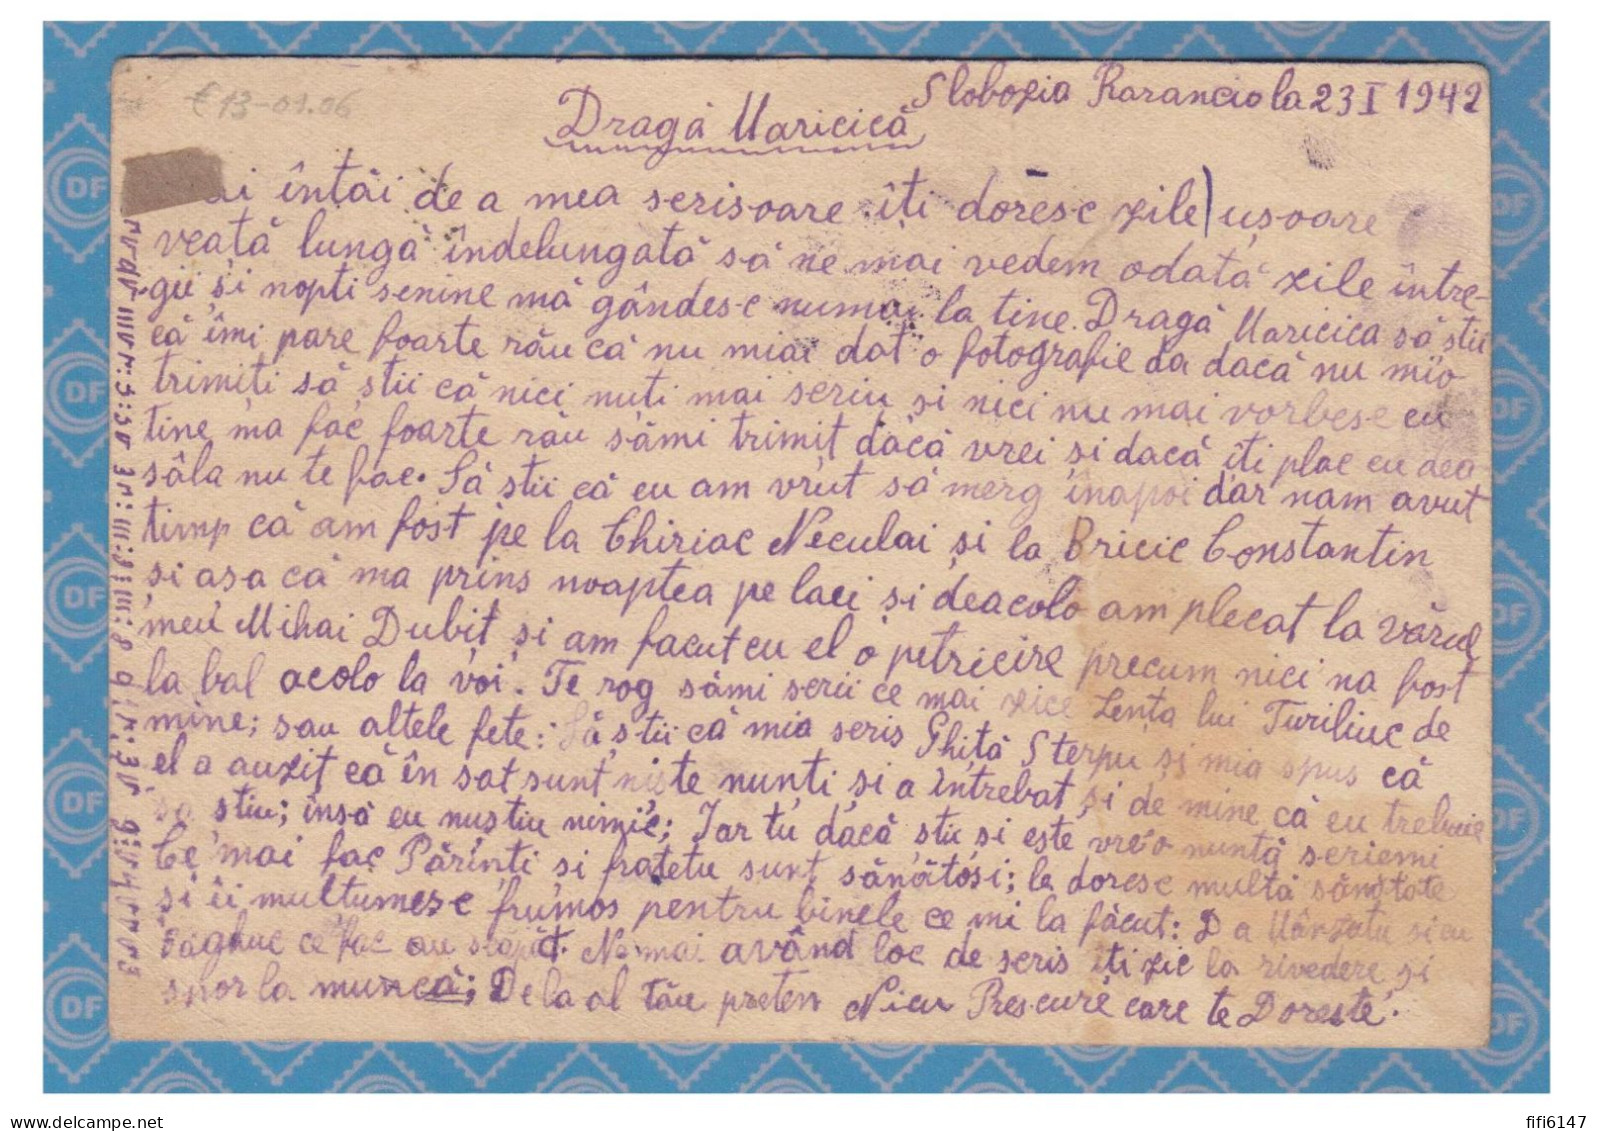 €13-01.06
Slobozia Rarancio la 23 I 1942
Dragă Maricică
ai întâi de a mea serisoare îți doresc zile ușoare
veată lungă îndelungată să ne mai vedem odată zile între-
gii și nopti senine mă gândesc numai la tine. Dragă Maricica să stii
că îmi pare foarte rău că nu miai dat o fotografie da dacă nu mio
trimiti să stii că nici nuti mai seriu si nici nu mai vorbesc cu
tine ma fac foarte rău sămi trimit dacă vrei si dacă iti plac cu dea
sâla nu te fac. Să stii că eu am vrut să merg inapoi dar nam avut
timp că am fost pe la Chiriac Neculai și la Bricic Constantin
si asa că ma prins noaptea pe laei si deacolo am plecat la vărul
meu Mihai Dubiț și am facut cu el o petricire precum nici na fost
la bal acolo la voi. Te rog sămi serii ce mai zice Lența lui Turiliuc de
mine; sau altele fete: Să știi că mia seris Ghită Sterpu și mia spus că
el a auzit că în sat sunt niște nunti și a intrebat și de mine că eu trebuie
sa stiu; însă eu nustiu nimic; Iar tu dacă stii si este vre'o nuntă seriemi
Ce mai fac Părinti si fratetu sunt sănătosi; le doresc multă sănătate
și ii multumesc frumos pentru binele ce mi la făcut: D a Mânzatu si cu
ce fac au scăpat. Ne mai având loc de seris iti zic la rivedere și
spor la muncă; De la al tău preten Nicu Prescure care te Doreste.
delcampe.net
fifi6147